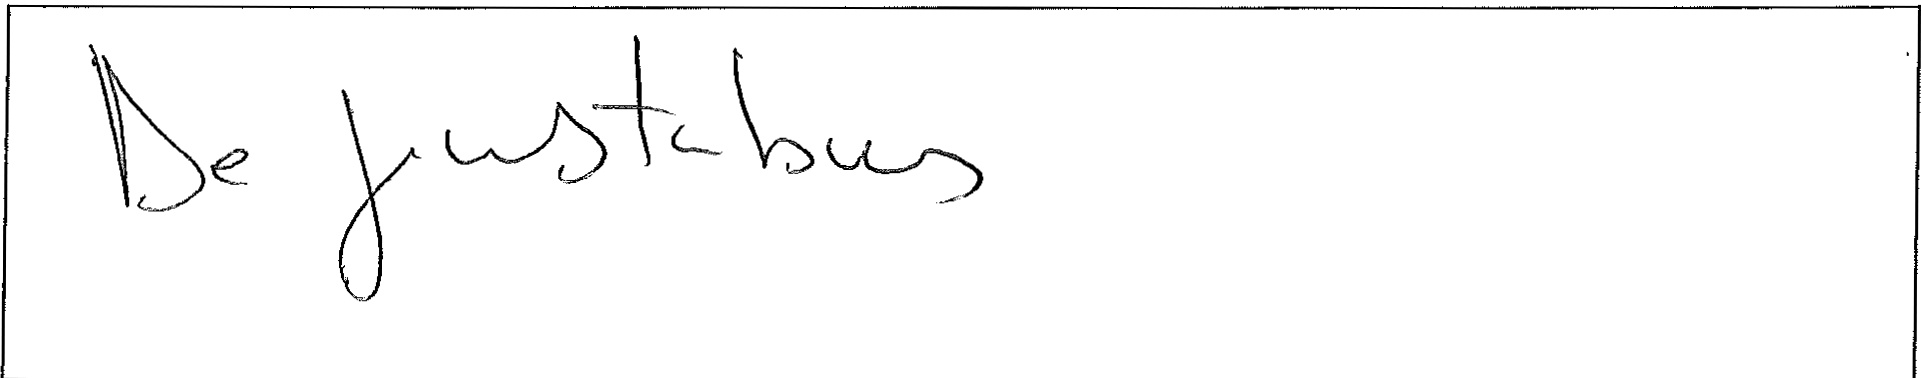 De justabus